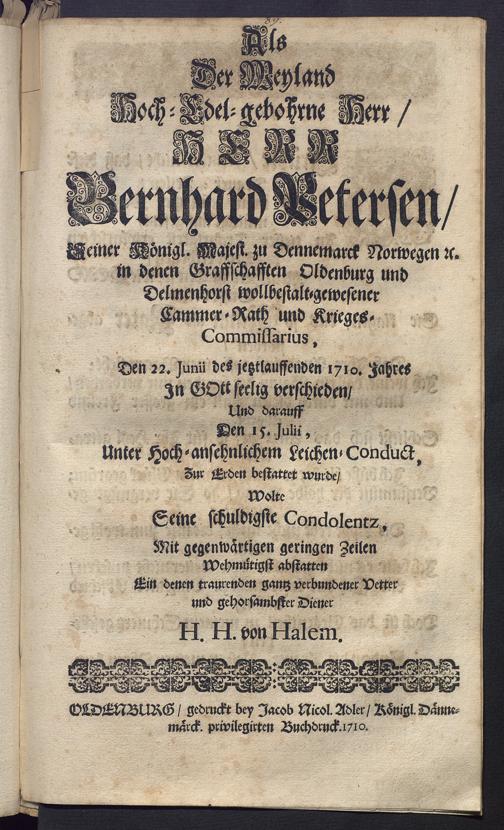 89.
Als
Der Weyland
Hoch-Edel-gebohrne Herr /
HERR
Bernhard Petersen /
Seiner Königl. Majest. zu Dennemarck Norwegen ꝛc.
in denen Graffschafften Oldenburg und
Delmenhorst wollbestalt-gewesener
Cammer-Rath und Krieges-
Commissarius,
Den 22. Junii des jetztlauffenden 1710. Jahres
In GOtt seelig verschieden/
Und darauff
Den 15. Julii,
Unter Hoch-ansehnlichem Leichen-Conduct,
Zur Erden bestattet wurde/
Wolte
Seine schuldigste Condolentz,
Mit gegenwärtigen geringen Zeilen
Wehmütigst abstatten
Ein denen traurenden gantz verbundener Vetter
und gehorsambster Diener
H. H. von Halem.
OLDENBURG/ gedruckt bey Jacob Nicol. Adler/ Königl. Dänne-
märck. privilegirten Buchdruck. 1710.